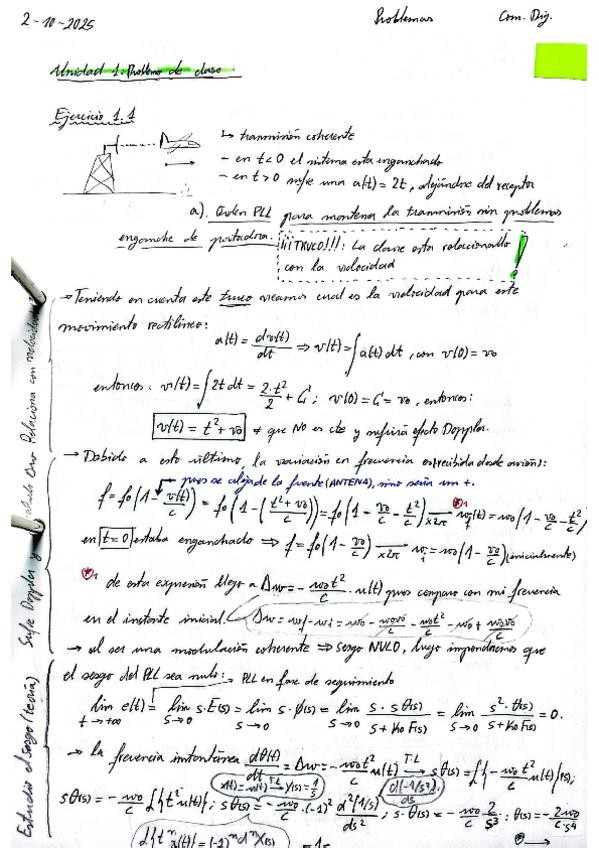 2-10-2025 Problemas Com. Dig.
Unidad 1: Problema de clase
Ejercicio 1.1
↳ transmisión coherente
- en t<0 el sistema esta enganchado
- en t>0 sufre una a(t) = 2t, alejándose del receptor
a). Orden PLL para mantener la transmisión sin problemas
enganche de portadora.
¡¡¡TRUCO!!!: La clave esta relacionarlo
con la velocidad !
→Teniendo en cuenta este truco veamos cual es la velocidad para este
movimiento rectilíneo:
a(t) = dv(t)/dt ⇒ v(t) = ∫a(t) dt, con v(0) = v0
entonces: v(t) = ∫2t dt = 2·t²/2 + C; v(0) = C = v0, entonces:
v(t) = t² + v0 que NO es cte y sufrirá efecto Doppler.
→ Debido a esto último, la variación en frecuencia es (recibida desde avión):
pues se aleja de la fuente (ANTENA), sino sería un +.
f = f0(1 - v(t)/c) = f0(1 - (t²+v0)/c) = f0(1 - v0/c - t²/c) →x2π wf(t) = w0(1 - v0/c - t²/c)
en t=0 estaba enganchado ⇒ f = f0(1 - v0/c) →x2π wi = w0(1 - v0/c) (inicialmente)
*1 de esta expresión llego a Δw = - w0t²/c · u(t) pues comparo con mi frecuencia
en el instante inicial. Δw = wf - wi = w0 - w0v0/c - w0t²/c - w0 + w0v0/c
→ al ser una modulación coherente ⇒ Sesgo NULO, luego impondremos que
el sesgo del PLL sea nulo: → PLL en fase de seguimiento
lim t→+∞ e(t) = lim s→0 s·E(s) = lim s→0 s·ϕ(s) = lim s→0 s·sθ(s)/(s+K0F(s)) = lim s→0 s²·θ(s)/(s+K0F(s)) = 0.
→ la frecuencia instantánea dθ(t)/dt = Δw = - w0t²/c u(t) →T.L sθ(s) = L{- w0t²/c u(t)}(s);
x(t) = u(t) →T.L X(s) = 1/s
d(-1/s²)/ds
sθ(s) = - w0/c L{t²u(t)}; sθ(s) = - w0/c ·(-1)² d²(1/s)/ds²; sθ(s) = - w0/c 2/s³; θ(s) = - 2w0/c·s⁴
Sufre Doppler y
Relaciona con velocidad
Estudio el Sesgo (teoría)